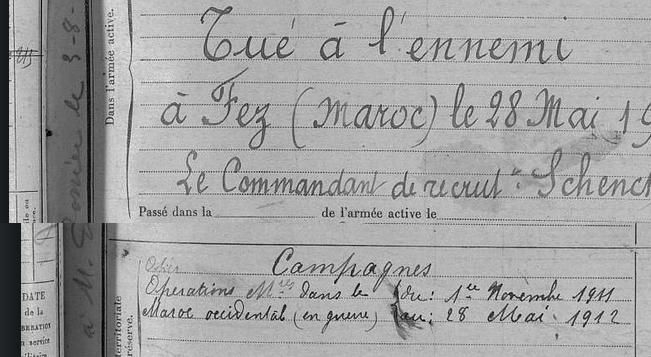 Dans l'armée active.
Tué à l'ennemi
à Fez (Maroc) le 28 Mai 19
Le Commandant de recrut.t Schenck
Passé dans la de l'armée active le
à M. le 3-8-
Campagnes
Opérations Mres dans le du: 1er Novembre 1911
Maroc occidental (en guerre) au: 28 Mai 1912
territoriale
réserve.
DATE
de la
LIBÉRATION
du service